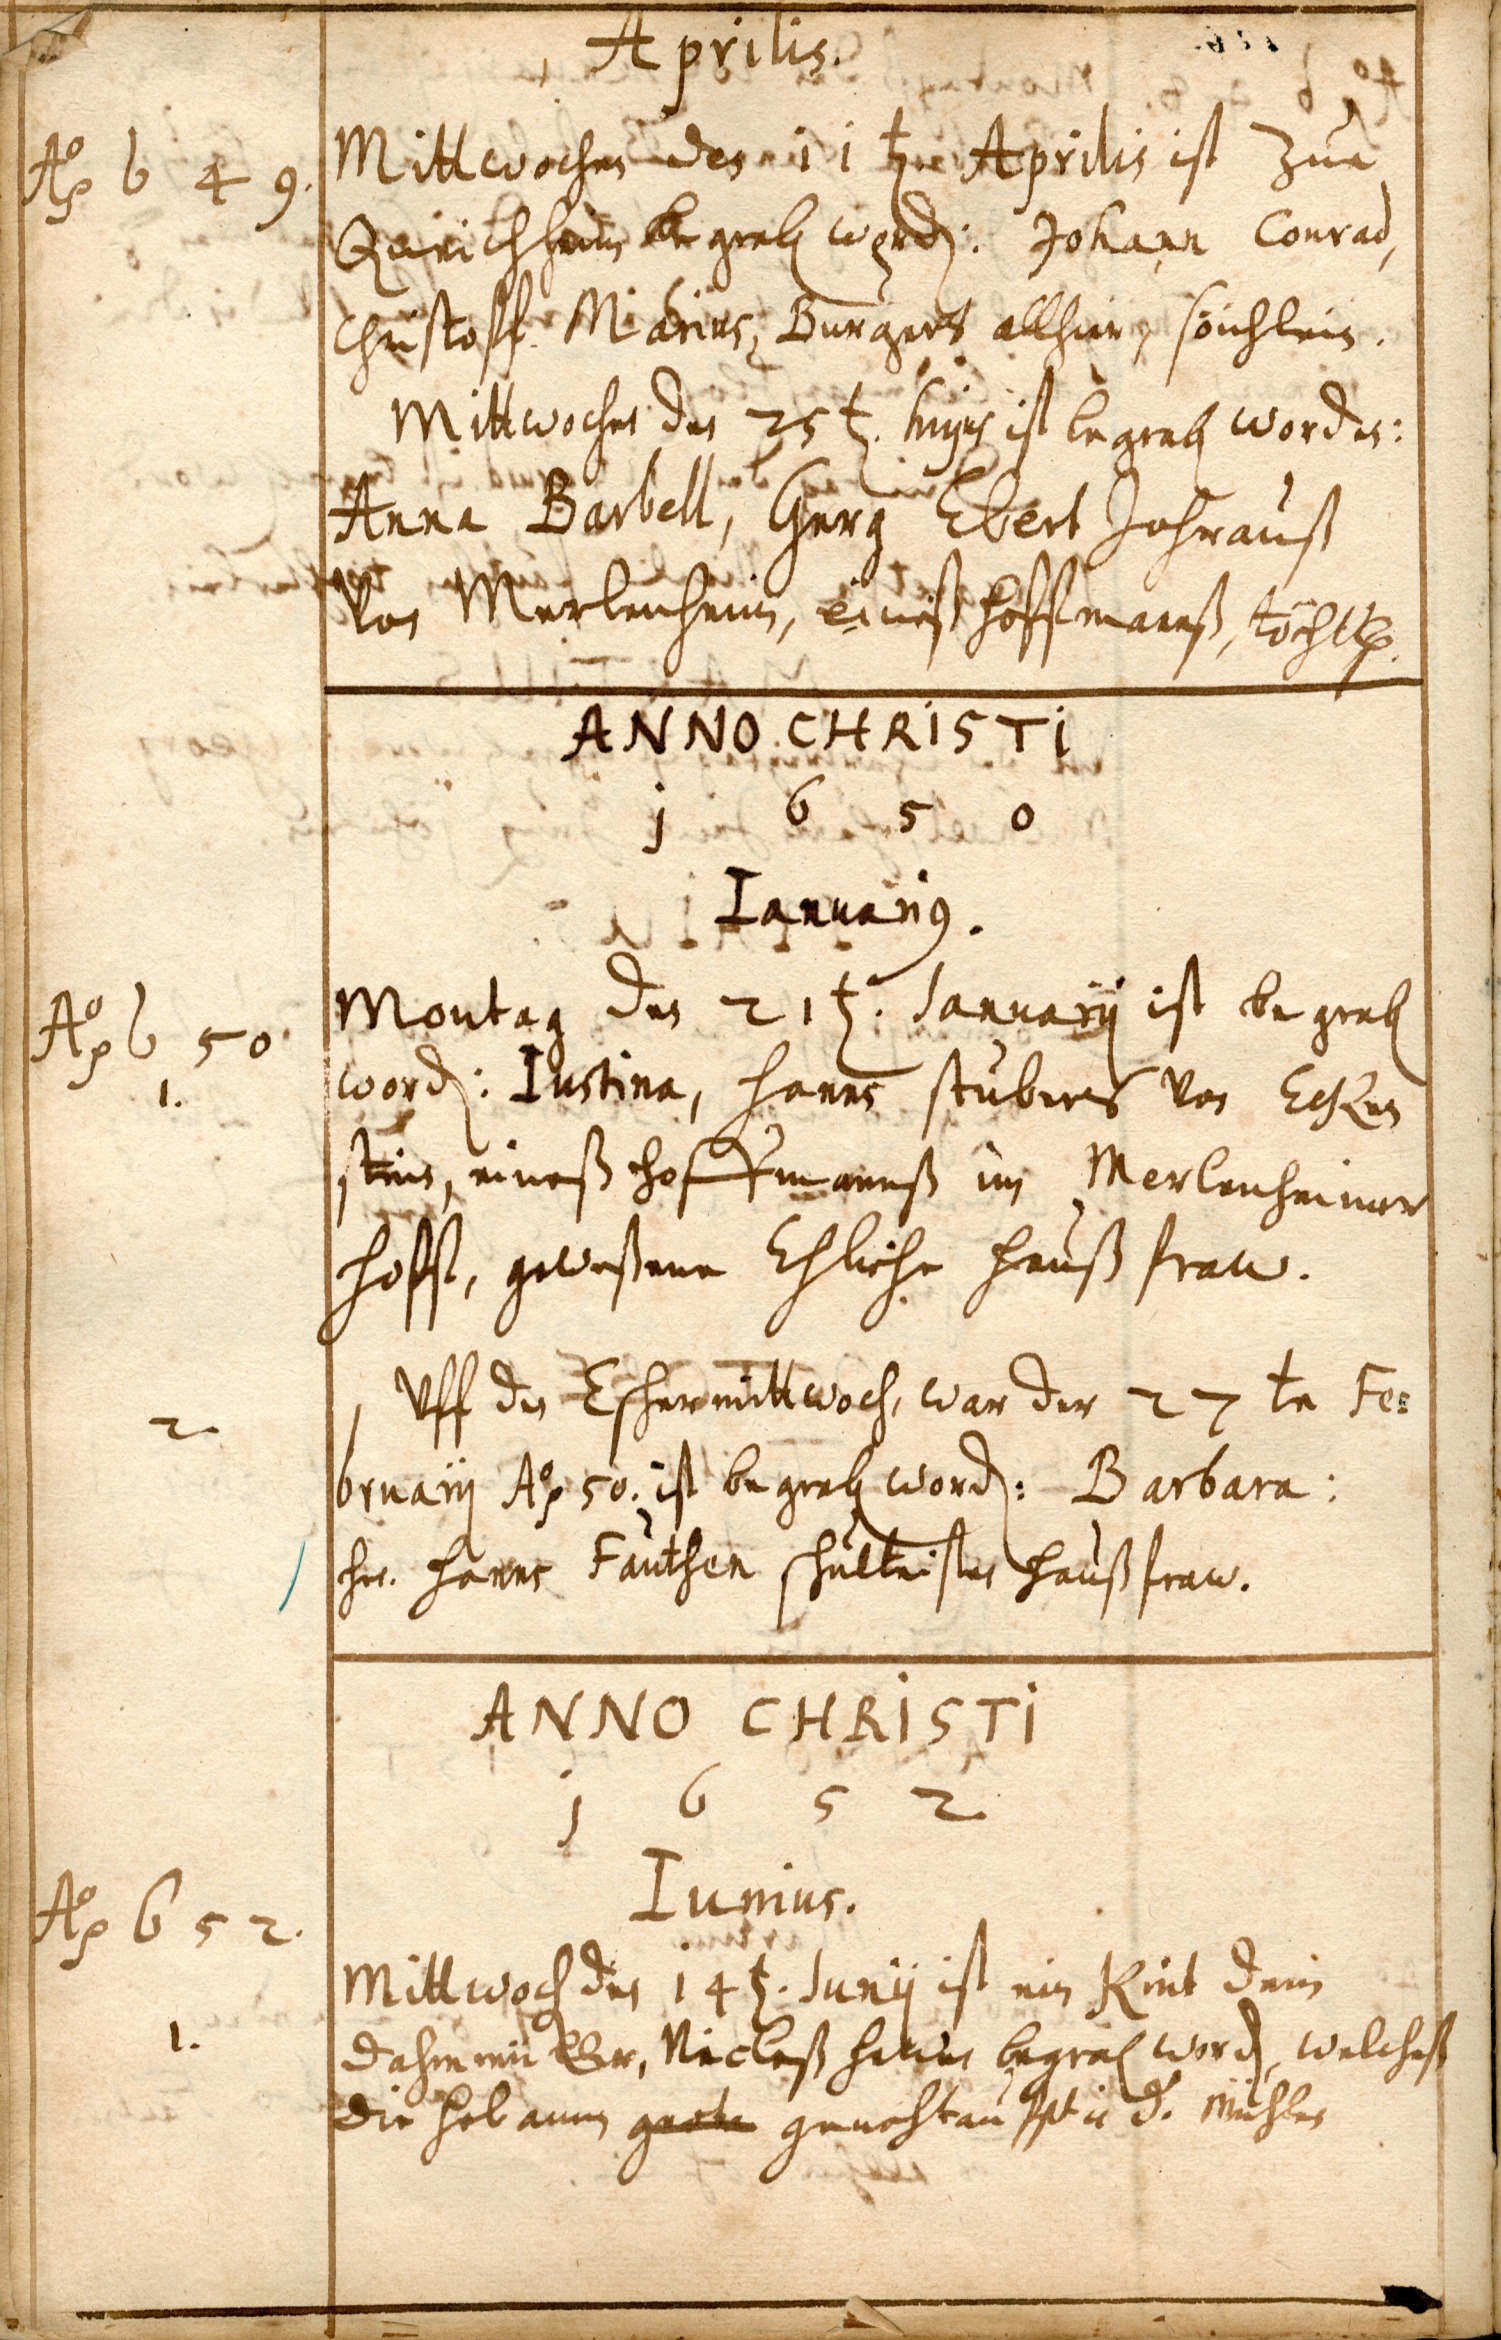 Aprilis.
Ao 649.
Mittwochen den 11 t. Aprilis ist zue
Quirichheim begrab word: Johann Conrad,
Christoff Marins, Burgers allhier, söhnlein.
Mittwochen den 25 t. hujus ist begrab worden:
Anna Barbell, Gerg Ebert Johrauß
von Merlenheim, eineß hoffmanß, töchtl.
ANNO CHRISTI
1650
Ianuarig.
Ao 650
1.
Montag den 21 t. Januarij ist begrab
word: Iustina, Hanns Stubers von Ecken
stein, eineß hoffmanneß im Merlenheimer
hoff, geweßene Ehliche Haußfraw.
2.
Uff den Eschermittwoch, war der 27 te Fe=
bruarij Ao 50. ist begrab word: Barbara:
hr. Hanns Fauthen schultheisen Haußfraw.
ANNO CHRISTI
1652
Iunius.
Ao 652.
1.
Mittwoch den 14 t. Junij ist ein Kint dem
Niclaß begrab word, welcheß
die hebamm genohtaufft d. Mühlen